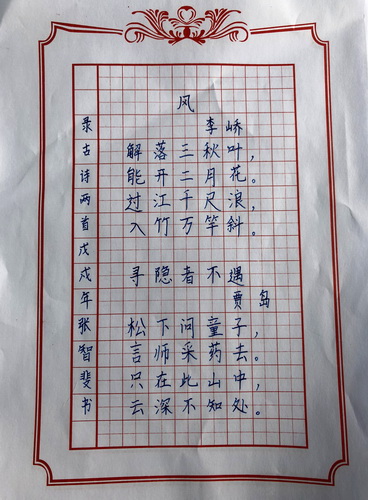 风
李峤
解落三秋叶，
能开二月花。
过江千尺浪，
入竹万竿斜。
寻隐者不遇
贾岛
松下问童子，
言师采药去。
只在此山中，
云深不知处。
录古诗两首戊戌年张智斐书